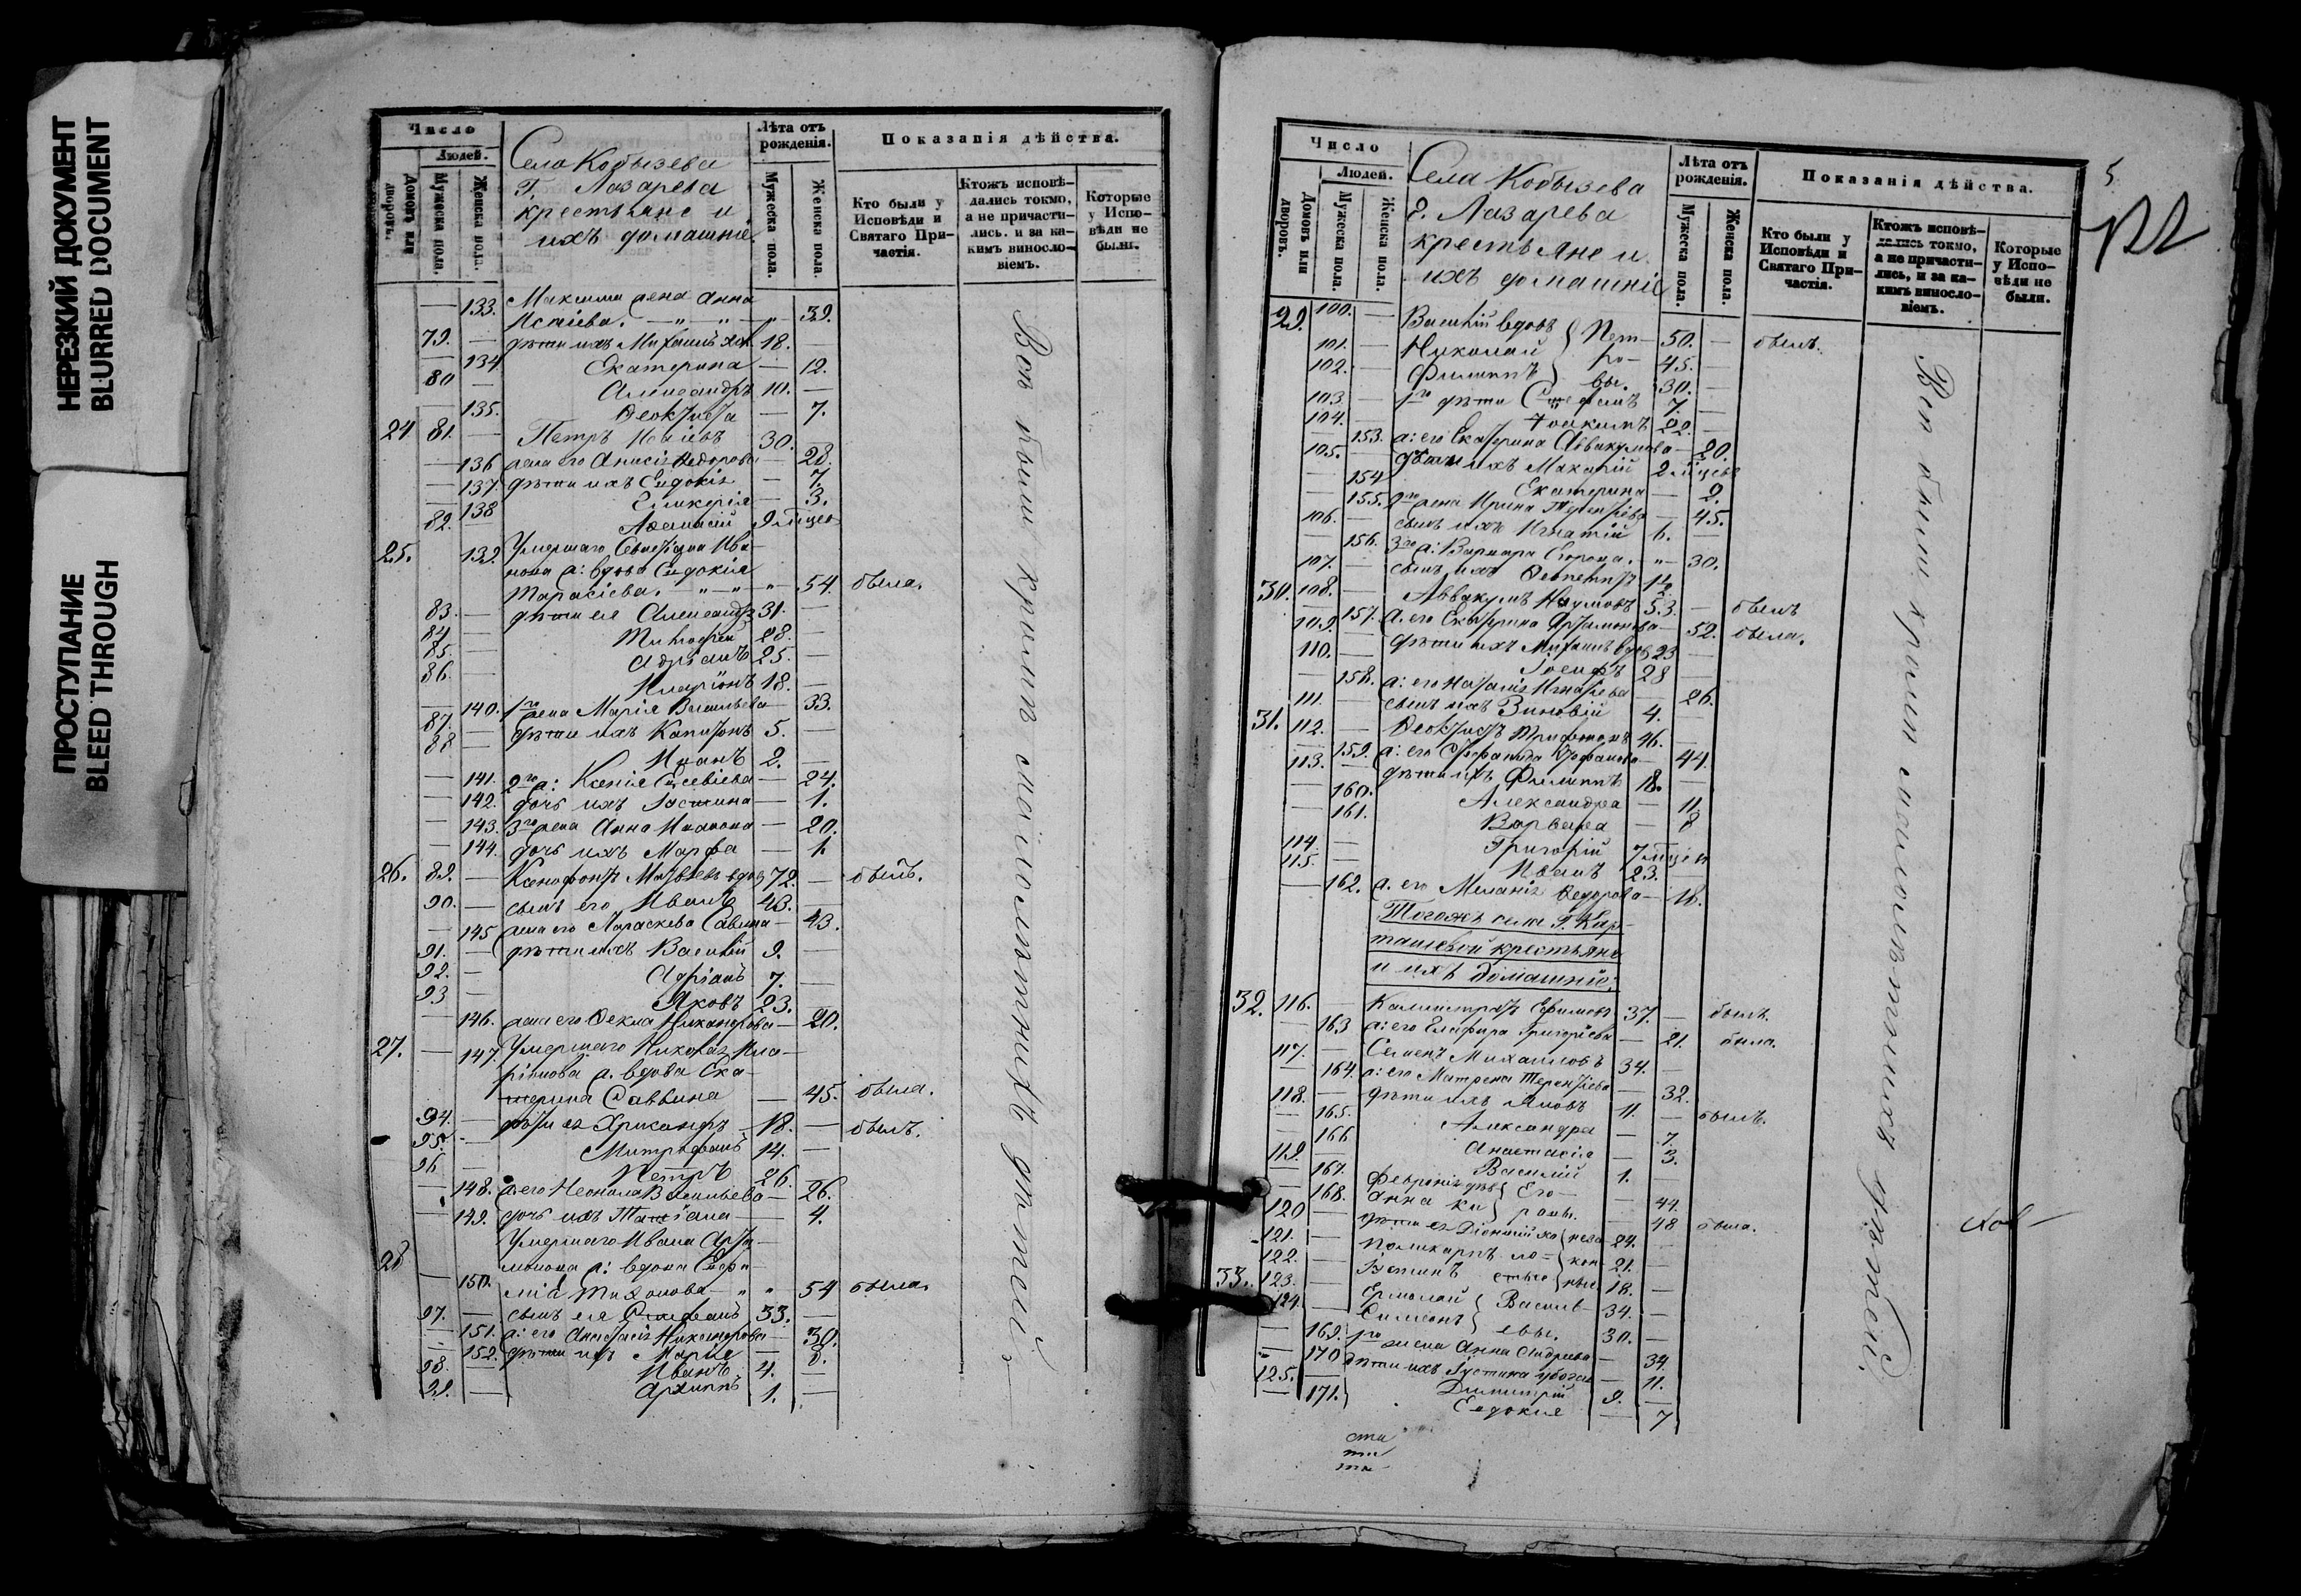 НЕРЕЗКИЙ ДОКУМЕНТ
BLURRED DOCUMENT
ПРОСТУПАНИЕ
BLEED THROUGH
Число
Людей.
Домовъ или дворовъ.
Мужеска пола.
Женска пола.
Села Кобызева
Г. Лазарева
крестьяне и
ихъ домашніе.
Лѣта отъ рожденія.
Мужеска пола.
Женска пола.
Показанія дѣйства.
Кто были у Исповѣди и Святаго Причастія.
Ктожъ исповѣдались токмо, а не причастились. и за какимъ винословіемъ.
Которые у Исповѣди не были.
— 133. Максима жена Анна
Исаіева. — " — " — " — 39.
79. — дѣти ихъ Михаилъ хол. 18. —
— 134 Екатерина — 12.
80 — Александръ 10. —
— 135. Ѳеоктиста — 7.
24 81. — Петръ Исаіевъ 30. —
— 136 жена его Анисія Ѳедорова — 28.
— 137 дѣти ихъ Евдокія — 7.
— 138 Гликерія — 3.
82. Аѳанасій 9 мѣцев
25. 139. Умершаго Севастіана Ива-
нова ж: вдова Евдокія
Тарасіева. — " — " — " 54. была.
83. — дѣти ея Александръ 31. —
84 — Тимофей 28. —
85. — Адріанъ 25. —
86. — Иларіонъ 18. —
— 140. 1го жена Марія Васильева — 33.
87. — дѣти ихъ Капитонъ 5. —
88 — Иванъ 2. —
— 141. 2го ж: Ксенія Евсевіева — 24.
— 142. дочь ихъ — 1.
— 143. 3го жена Анна Иванова — 20.
— 144. дочь ихъ Марфа — 1.
26. 89. — Ксенофонтъ Матвѣевъ вдов 72. — былъ.
90. — сынъ его Иванъ 43. —
— 145 жена его Параскева Саввина — 43.
91. — дѣти ихъ Василій 9. —
92. — Адріанъ 7. —
93 — Яковъ 23. —
— 146. жена его Ѳекла Никандрова — 20.
27. — 147. Умершаго Николая Ила-
ріонова ж. вдова Ека-
терина Саввина — 45. была.
94. — дѣти ея 18. — былъ.
95. — Митрофанъ 14. —
96 — Петръ 26. —
— 148. ж. его Неонила Васильева — 26.
— 149. дочь ихъ Татіана — 4.
Умершаго Ивана Арта-
28 монова ж: вдова Евфи-
— 150. міа Тихонова — " " 54 была.
97. — сынъ ея Стефанъ 33. —
— 151. ж: его Анастасія Никанорова — 30.
— 152. дѣти ихъ Марія — 8.
98. — Иванъ 4. —
99. — Архиппъ 1. —
Всѣ были кромѣ малолѣтнихъ дѣтей
5
Число
Людей.
Домовъ или дворовъ.
Мужеска пола.
Женска пола.
Села Кобызева
Г. Лазарева
крестьяне и
ихъ домашніе
Лѣта отъ рожденія.
Мужеска пола.
Женска пола.
Показанія дѣйства.
Кто были у Исповѣди и Святаго Причастія.
Ктожъ исповѣдались токмо, а не причастились, и за какимъ винословіемъ.
Которые у Исповѣди не были.
29. 100. — Василій вдовъ } Пет- 50. — былъ.
101. — Николай ро- 45. —
102. — Филиппъ } вы. 30. —
103 — 1го дѣти Стефанъ 7. —
104. — Іоакимъ 22. —
— 153. ж: его Екатерина Аввакумова — 20.
105. — дѣти ихъ Макарій 2 мѣцевъ
— 154 Екатерина — 2.
— 155. 2го жена Ирина Терентіева — 45.
106. — сынъ ихъ Игнатій 6. —
— 156. 3го ж: Варвара Егорова. " — 30.
107. — сынъ ихъ 12.
30. 108. — Аввакумъ Наумовъ 53. — былъ
— 157. ж. его Екатерина Артамонова — 52. была.
109. — дѣти ихъ Михаилъ вдов 23 —
110. — Іосифъ 28 —
— 158. ж: его Наталія Игнатіева — 26.
111. — сынъ ихъ Зиновій 4. —
31. 112. — Ѳеоктистъ Трифоновъ 46. —
— 159. ж: его — 44.
113. — дѣти ихъ Филиппъ 18. —
— 160. Александра — 11.
— 161. Варвара — 8
114. — Григорій 7 мѣцев
115. — Иванъ 23. —
— 162. ж. его Меланія Ѳедорова — 18.
Тогожъ села Г. Кар-
ташевой крестьяне
и ихъ домашніе:
32. 116. — Калистратъ Ефимовъ 37. — былъ.
— 163 ж: его Григоріева — 21. была.
117. — Семенъ Михаиловъ 34. —
— 164. ж: его Матрена Терентіева — 32.
118. — дѣти ихъ Яковъ 11. — былъ.
— 165. Александра — 7.
— 166 Анастасія — 3.
119. — Василій 1. —
— 167. Февронія дѣв } Его- — 44.
— 168. Анна ки } ровы. — 48 была.
120 — дѣти ея Діонисій хо { неза 24. —
121. — Поликарпъ ло- { кон- 21. —
122. — Іустинъ стые { ные 18. —
33. 123. — Ермолай { Василь- 34. —
124. — Симеонъ } евы. 30. —
— 169. 1го жена Анна Андреева — 34.
— 170 дѣти ихъ Іустина убогая — 11.
125. — Димитрій 9. —
— 171. Евдокія — 7
Всѣ были кромѣ малолѣтнихъ дѣтей